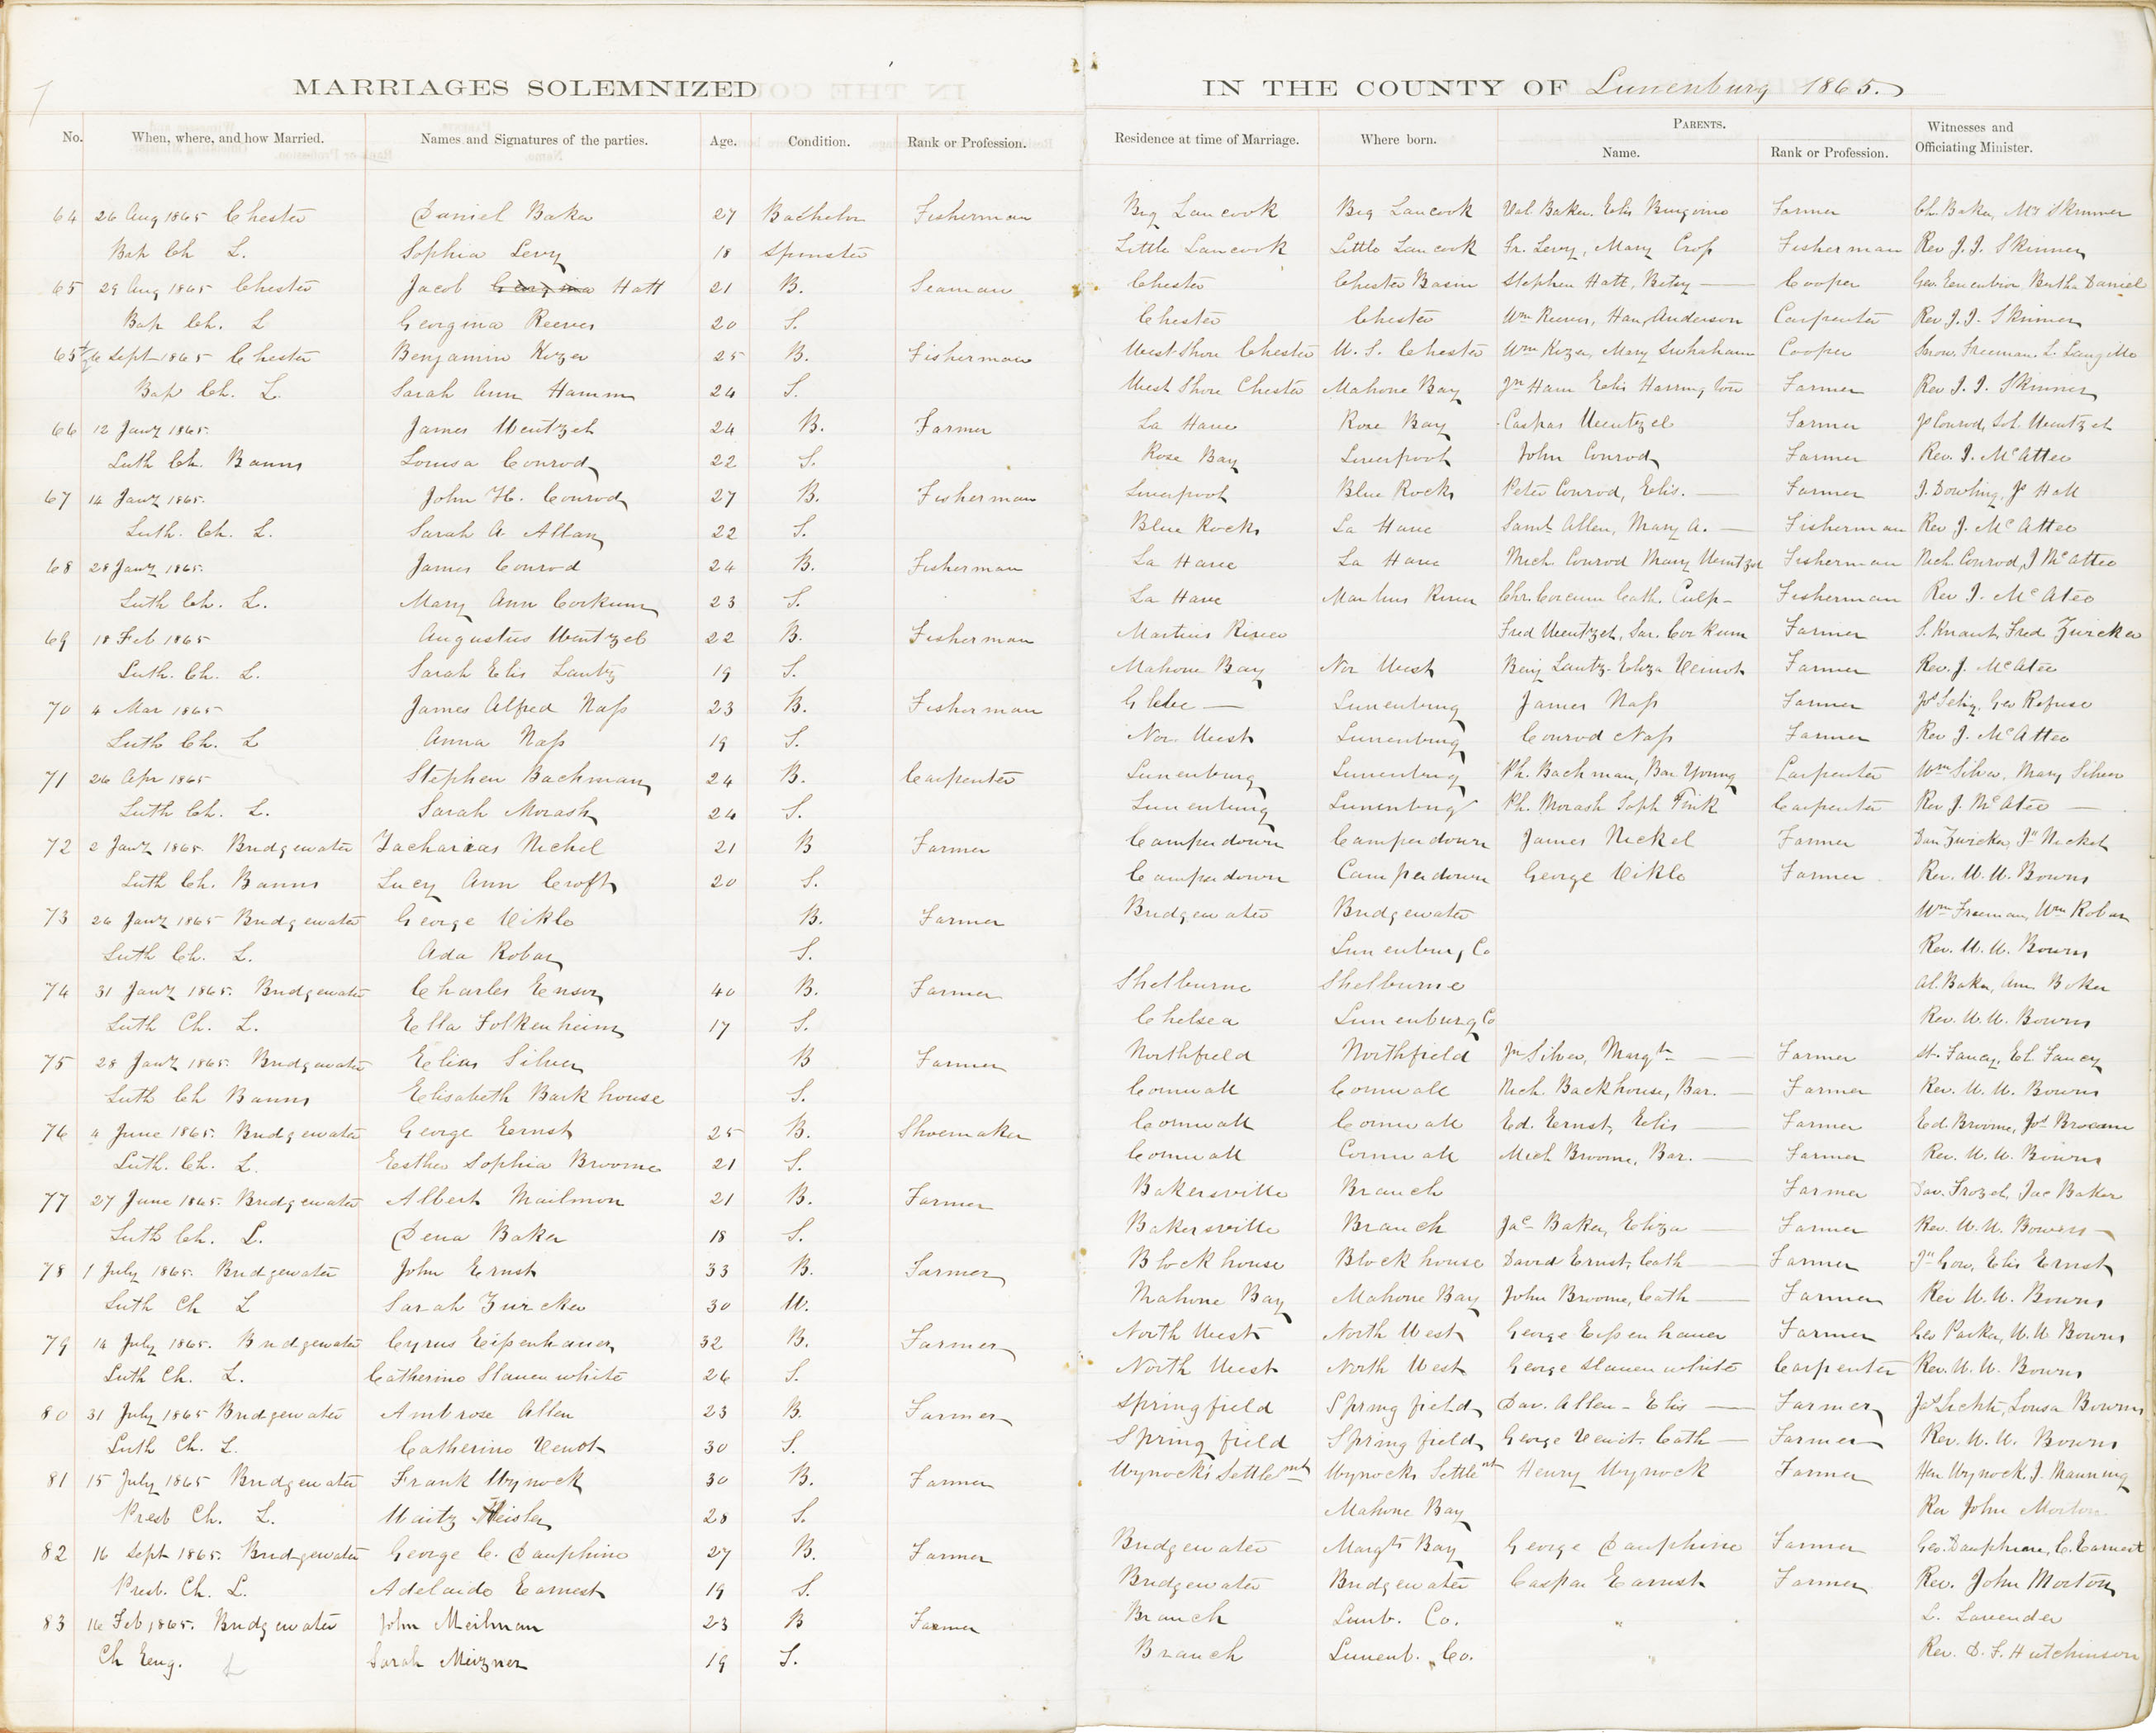 MARRIAGES SOLEMNIZED IN THE COUNTY OF Lunenburg 1865.
No. When, where, and how Married. Names and Signatures of the parties. Age. Condition. Rank or Profession. Residence at time of Marriage. Where born. PARENTS. Name. Rank or Profession. Witnesses and Officiating Minister.
64 26 Aug 1865 Chester Daniel Baker 27 Bachelor Fisherman Big Tancook Big Tancook Val Baker. Elis Farmer Ch. Baker, Mrs Skinner
Bap Ch L. Sophia Levy 18 Spinster Little Tancook Little Tancook Fr. Levy, Mary Crop Fisherman Rev J.I. Skinner
65 29 Aug 1865 Chester Jacob Georgina Hatt 21 B. Seaman Chester Chester Basin Stephen Hatt, Betsy — Cooper Geo. Bertha Daniel
Bap Ch. L Georgina Reeves 20 S. Chester Chester Wm Reeves, Han, Anderson Carpenter Rev J.I. Skinner
65½ 6 Sept 1865 Chester Benjamin Kizer 25 B. Fisherman West Shore Chester W. S. Chester Wm Kizer, Mary Cooper Snow. Freeman. L. Langille
Bap Ch. L. Sarah Ann Hamm 24 S. West Shore Chester Mahone Bay Jn Ham Elis Harrington Farmer Rev J. I. Skinner
66 12 Jany 1865. James Wentzel 24 B. Farmer La Have Rose Bay Caspar Wentzel Farmer Js Conrod, Sol. Wentzel
Luth Ch. Banns Louisa Conrod 22 S. Rose Bay Liverpool John Conrod Farmer Rev. J. McAttee
67 14 Jany 1865. John H. Conrod 27 B. Fisherman Liverpool Blue Rocks Peter Conrod, Elis. — Farmer J. Dowling, Js Hall
Luth. Ch. L. Sarah A. Allan 22 S. Blue Rocks La Have Saml Allen, Mary A. — Fisherman Rev J. McAttee
68 28 Jany 1865. James Conrod 24 B. Fisherman La Have La Have Mich. Conrod Mary Wentzel Fisherman Mich. Conrod, J McAttee
Luth Ch. L. Mary Ann Corkum 23 S. La Have Martins River Chr. Corcum Cath. Culp- Fisherman Rev J. McAtee
69 18 Feb 1865 Augustus Wentzel 22 B. Fisherman Martins River Fred Wentzel, Sar. Corkum Farmer S. Knaut, Fred Zwicker
Luth. Ch. L. Sarah Elis Lantz 19 S. Mahone Bay Nor West Benj Lantz. Eliza Veinot Farmer Rev. J. McAtee
70 4 Mar 1865 James Alfred Nass 23 B. Fisherman Glebe — Lunenburg James Nass Farmer Js Selig, Geo Refuse
Luth Ch. L Anna Nass 19 S. Nor. West Lunenburg Conrod Nass Farmer Rev J. McAttee
71 26 Apr 1865 Stephen Bachman 24 B. Carpenter Lunenburg Lunenburg Ph. Bachman, Bar Young Carpenter Wm Silver, Mary Silver
Luth Ch. L. Sarah Morash 24 S. Lunenburg Lunenburg Ph. Morash Soph Fink Carpenter Rev J. McAtee —
72 2 Jany 1865. Bridgewater Zacharias Nickel 21 B Farmer Camperdown Camperdown James Nickel Farmer Dan Zwicker, Jn Nickel
Luth Ch. Banns Lucy Ann Croft 20 S. Camperdown Camperdown George Farmer Rev. W. W. Bowns
73 26 Jany 1865 Bridgewater George B. Farmer Bridgewater Bridgewater Wm Freeman, Wm Robar
Luth Ch. L. Ada Robar S. Lunenburg Co Rev. W. W. Bowns
74 31 Jany 1865. Bridgewater Charles Ensor 40 B. Farmer Shelburne Shelburne Al. Baker, Ann Baker
Luth Ch. L. Ella Folkenheim 17 S. Chelsea Lunenburg Co Rev. W. W. Bowns
75 28 Jany 1865. Bridgewater Elias Silver B Farmer Northfield Northfield Jn Silver, Margt — Farmer St. Fancy, El. Fancy
Luth Ch Banns Elisabeth Barkhouse S. Cornwall Cornwall Mich. Backhouse, Bar. — Farmer Rev. W. W. Bowns
76 4 June 1865. Bridgewater George Ernst 25 B. Shoemaker Cornwall Cornwall Ed. Ernst, Elis — Farmer Ed Broome, Jos Broome
Luth. Ch. L. Esther Sophia Broome 21 S. Cornwall Cornwall Mich Broome, Bar. — Farmer Rev. W. W. Bowns
77 27 June 1865. Bridgewater Albert Mailmon 21 B. Farmer Bakersville Branch Farmer Dav. Frozel, Jac Baker
Luth Ch. L. Dena Baker 18 S. Bakersville Branch Jac Baker, Eliza — Farmer Rev. W. W. Bowns
78 1 July 1865. Bridgewater John Ernst 33 B. Farmer Block house Block house David Ernst, Cath — Farmer Jn Gow, Elis Ernst
Luth Ch L Sarah Zwicker 30 W. Mahone Bay Mahone Bay John Broome, Cath — Farmer Rev W. W. Bowns
79 14 July 1865. Bridgewater Cyrus Eisenhauer 32 B. Farmer North West North West George Eisenhauer Farmer Geo Parker, W. W Bowns
Luth Ch. L. Catherine Slauenwhite 26 S. North West North West George Slauenwhite Carpenter Rev. W. W. Bowns
80 31 July 1865 Bridgewater Ambrose Allen 23 B. Farmer Springfield Springfield Dav. Allen - Elis — Farmer Louisa Bowns
Luth Ch. L. Catherine Venot 30 S. Springfield Springfield George Veinot. Cath — Farmer Rev. W. W. Bowns
81 15 July 1865 Bridgewater Frank Wynock 30 B. Farmer Wynocks Settlemt Wynocks Settlemt Henry Wynock Farmer Hen Wynock, J. Manning
Presb Ch. L. Waitz Heisler 28 S. Mahone Bay Rev John Morton
82 16 Sept 1865. Bridgewater George C. Dauphine 27 B. Farmer Bridgewater Margts Bay George Dauphine Farmer Geo. Dauphinee, C. Earnest
Presb. Ch. L. Adelaide Earnest 19 S. Bridgewater Bridgewater Caspar Earnst Farmer Rev. John Morton
83 16 Feb 1865. Bridgewater John Meilman 23 B Farmer Branch Lunb. Co. L. Lavender
Ch Eng. L Sarah Meizner 19 S. Branch Lunenb. Co. Rev. D. F. Hutchinson